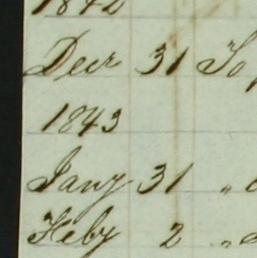 1842
Decr 31 To
1843
Jany 31 "
Feby 2 "